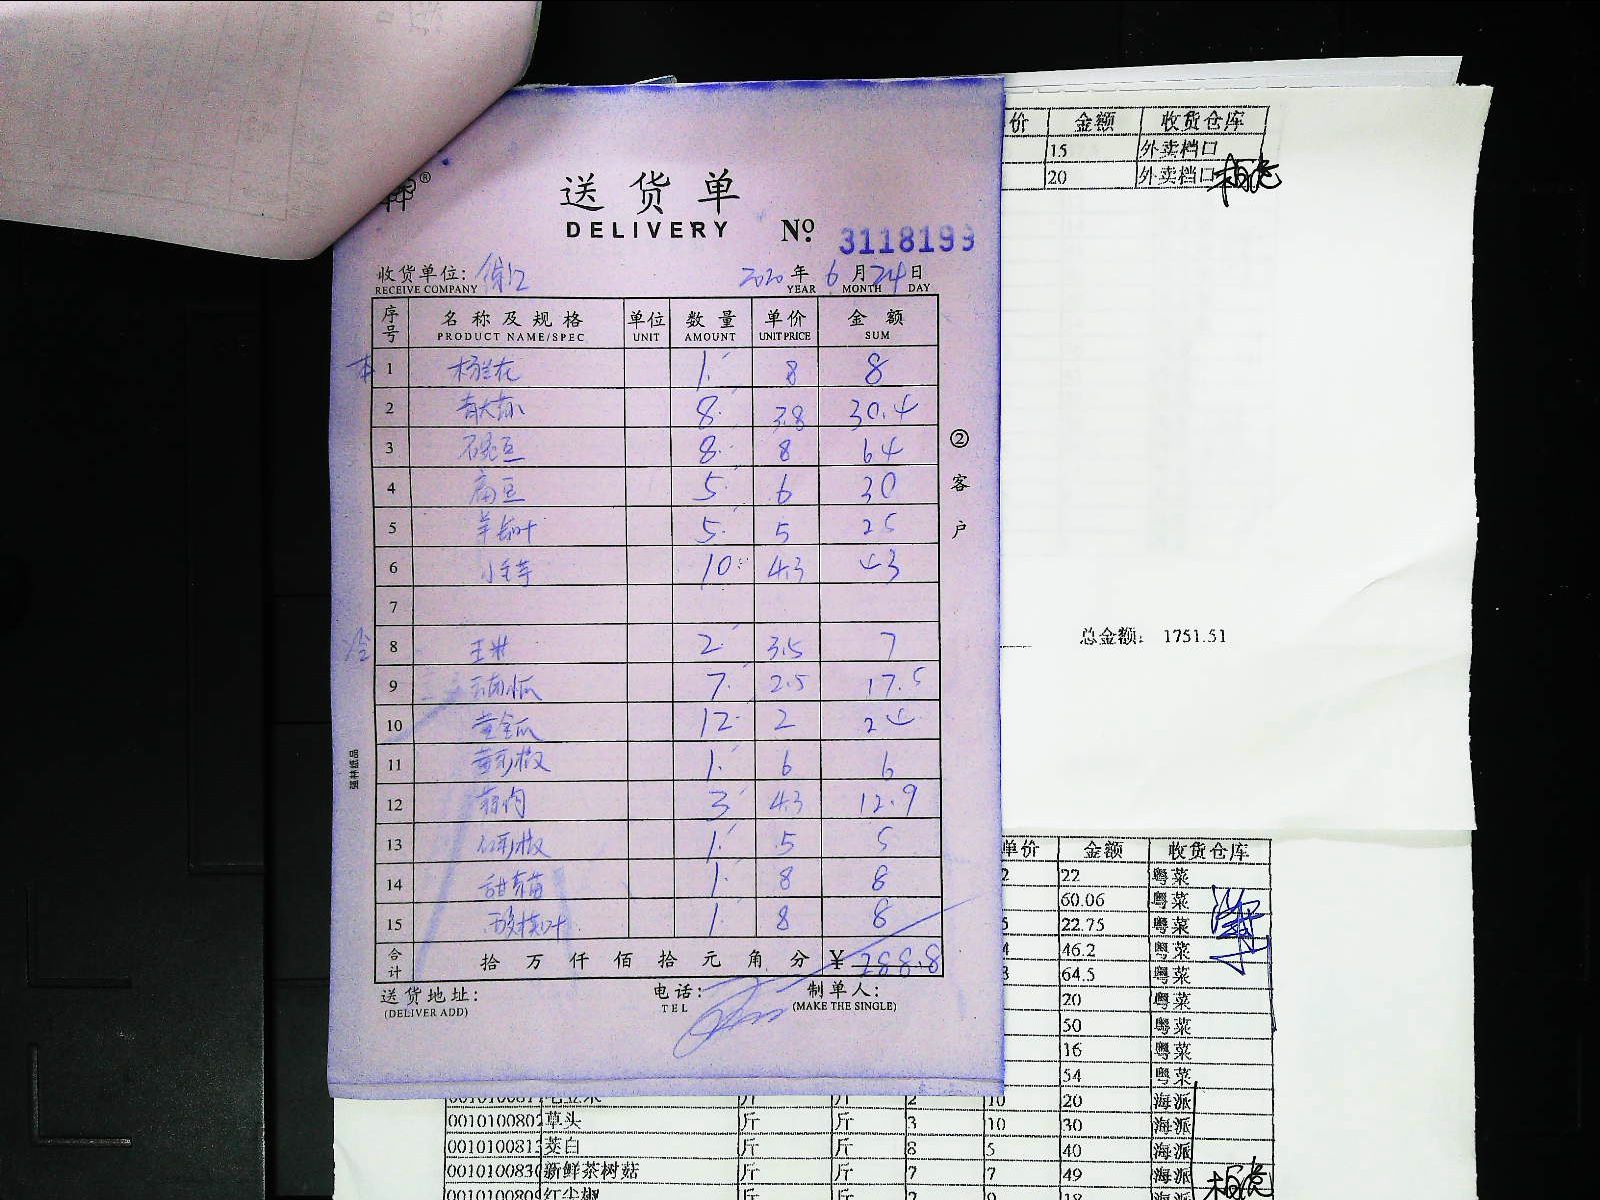 送货单
DELIVERY № 3118199
收货单位: 徐汇 2020年6月24日
RECEIVE COMPANY YEAR MONTH DAY
序号 名称及规格 单位 数量 单价 金额
PRODUCT NAME/SPEC UNIT AMOUNT UNIT PRICE SUM
本 1 杨兰花 1 8 8
2 8 3.8 30.4
3 8 8 64
4 扁豆 5 6 30
5 5 5 25
6 小毛芋 10 4.3 43
7
冷 8 2 3.5 7
9 7 2.5 17.5
10 黄金瓜 12 2 24
11 黄彩椒 1 6 6
12 3 4.3 12.9
13 红彩椒 1 5 5
14 1 8 8
15 1 8 8
合计 拾 万 仟 佰 拾 元 角 分 ¥ 288.8
送货地址: 电话: 制单人:
(DELIVER ADD) TEL (MAKE THE SINGLE)
② 客户
强林纸品
价 金额 收货仓库
15 外卖档口
20 外卖档口
总金额: 1751.51
单价 金额 收货仓库
2 22 粤菜
60.06 粤菜
5 22.75 粤菜
4 46.2 粤菜
3 64.5 粤菜
20 粤菜
50 粤菜
16 粤菜
54 粤菜
斤 斤 2 10 20 海派
草头 斤 斤 3 10 30 海派
茭白 斤 斤 8 5 40 海派
新鲜茶树菇 斤 斤 7 7 49 海派
红尖椒